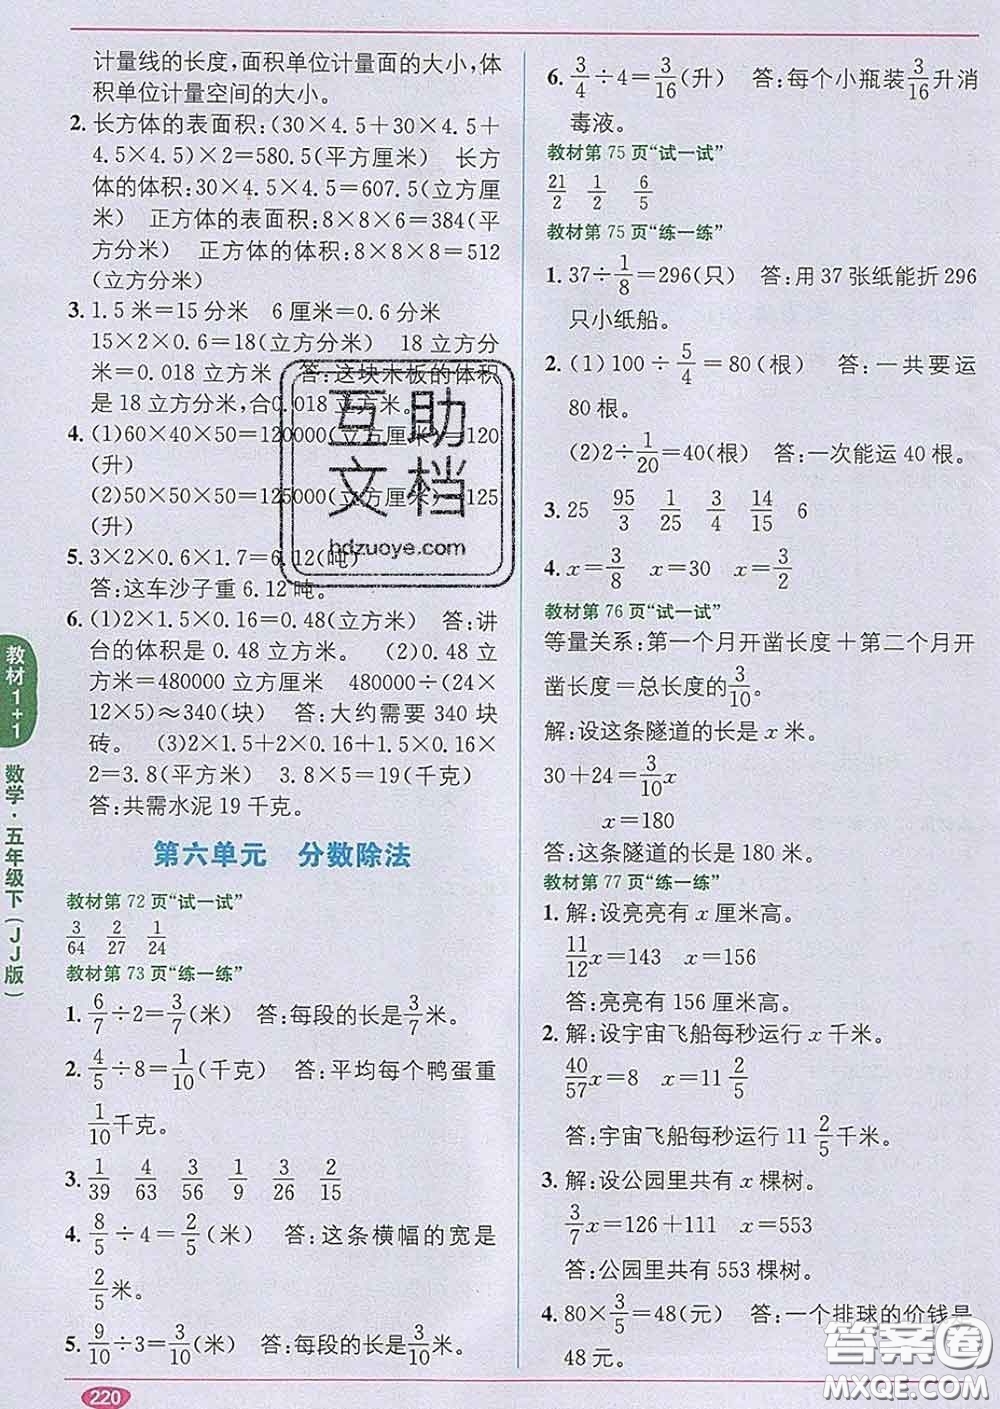 计量线的长度,面积单位计量面的大小,体
积单位计量空间的大小。
2. 长方体的表面积:(30×4.5+30×4.5+
4.5×4.5)×2=580.5(平方厘米) 长方
体的体积:30×4.5×4.5=607.5(立方厘
米) 正方体的表面积:8×8×6=384(平
方分米) 正方体的体积:8×8×8=512
(立方分米)
3. 1.5米=15分米 6厘米=0.6分米
15×2×0.6=18(立方分米) 18立方分
米=0.018立方米 答:这块木板的体积
是18立方分米,合0.018立方米。
4. (1)60×40×50=120000(立方厘米)=120
(升)
(2)50×50×50=125000(立方厘米)=125
(升)
5. 3×2×0.6×1.7=6.12(吨)
答:这车沙子重6.12吨。
6. (1)2×1.5×0.16=0.48(立方米) 答:讲
台的体积是0.48立方米。 (2)0.48立方
米=480000立方厘米 480000÷(24×
12×5)≈340(块) 答:大约需要340块
砖。 (3)2×1.5+2×0.16+1.5×0.16
×2=3.8(平方米) 3.8×5=19(千克)
答:共需水泥19千克。
第六单元 分数除法
教材第72页“试一试”
3/64 2/27 1/24
教材第73页“练一练”
1. 6/7÷2=3/7(米) 答:每段的长是3/7米。
2. 4/5÷8=1/10(千克) 答:平均每个鸭蛋重
1/10千克。
3. 1/39 4/63 3/56 1/9 3/26 2/15
4. 8/5÷4=2/5(米) 答:这条横幅的宽是
2/5米。
5. 9/10÷3=3/10(米) 答:每段的长是3/10米。
6. 3/4÷4=3/16(升) 答:每个小瓶装3/16升消
毒液。
教材第75页“试一试”
21/2 1/2 6/5
教材第75页“练一练”
1. 37÷1/8=296(只) 答:用37张纸能折296
只小纸船。
2. (1)100÷5/4=80(根) 答:一共要运
80根。
(2)2÷1/20=40(根) 答:一次能运40根。
3. 25 95/3 1/25 3/4 14/15 6
4. x=3/8 x=30 x=3/2
教材第76页“试一试”
等量关系:第一个月开凿长度+第二个月开
凿长度=总长度的3/10。
解:设这条隧道的长是x米。
30+24=3/10x
x=180
答:这条隧道的长是180米。
教材第77页“练一练”
1. 解:设亮亮有x厘米高。
11/12x=143 x=156
答:亮亮有156厘米高。
2. 解:设宇宙飞船每秒运行x千米。
40/57x=8 x=11 2/5
答:宇宙飞船每秒运行11 2/5千米。
3. 解:设公园里共有x棵树。
3/7x=126+111 x=553
答:公园里共有553棵树。
4. 80×3/5=48(元) 答:一个排球的价钱是
48元。
教材1+1 数学·五年级下(JJ版)
220
互助
文档
hdzuoye.com
答案圈
MXQE.COM